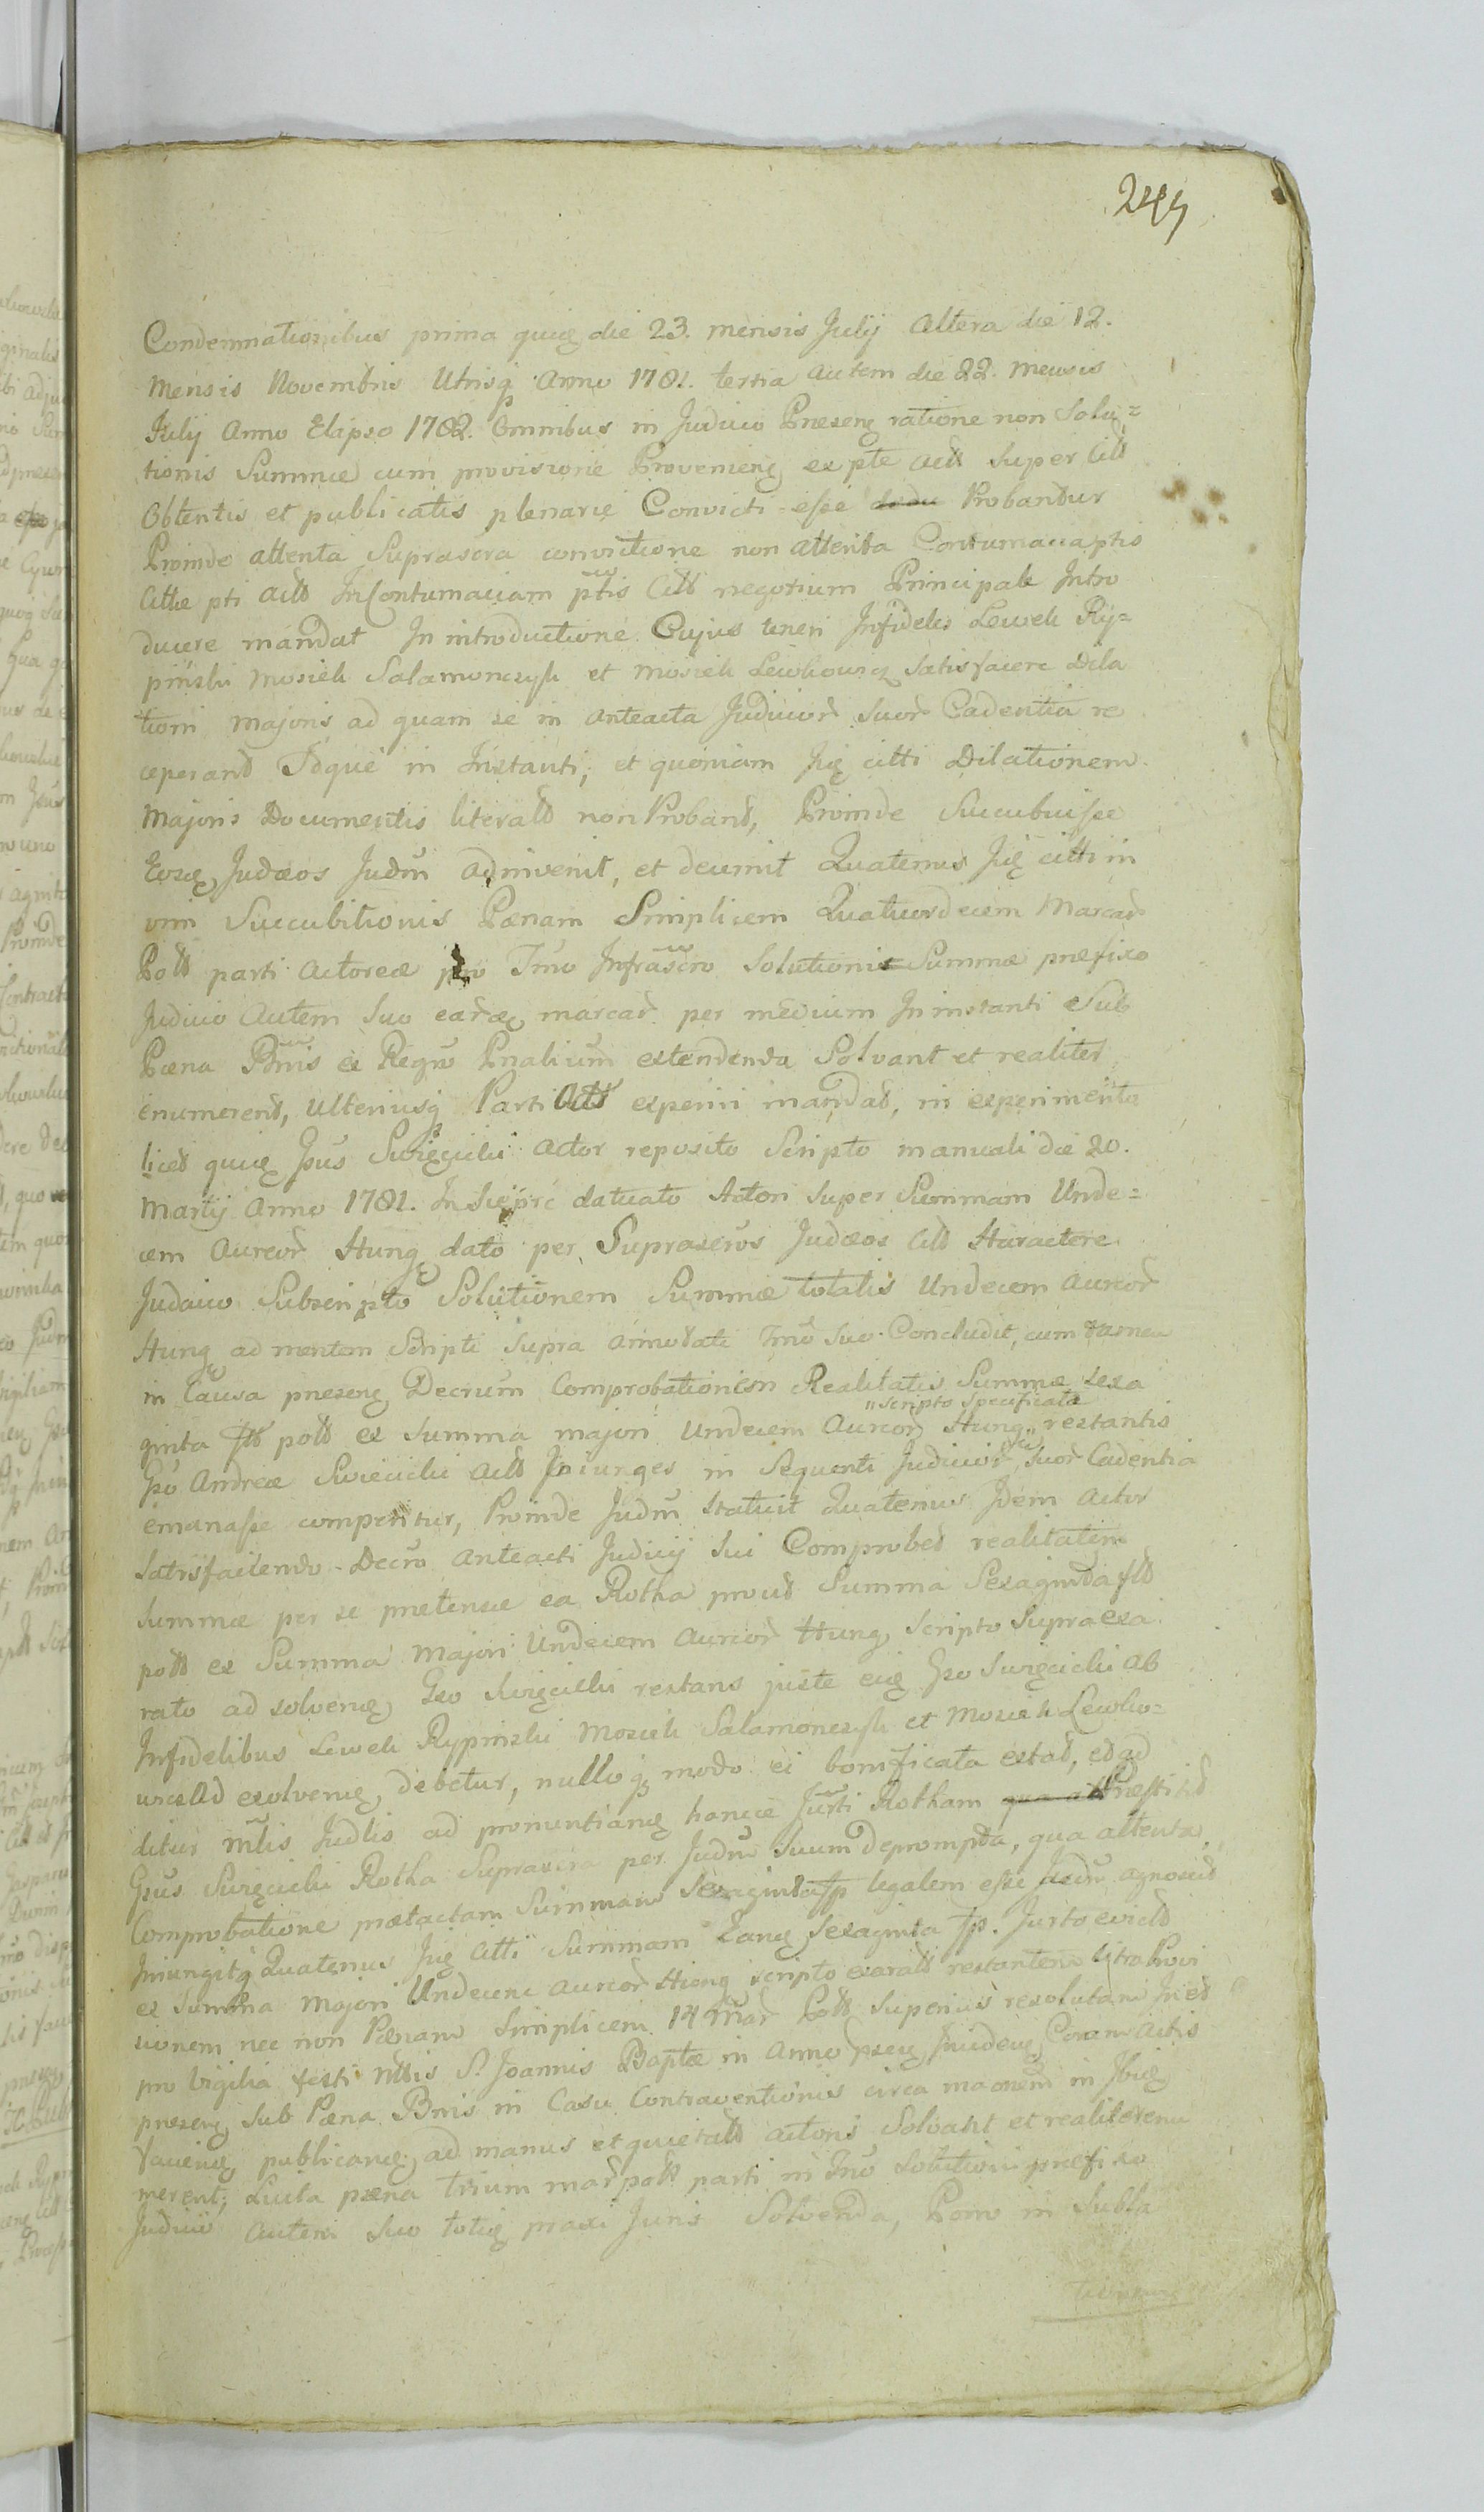 244
Condemnationibus prima quiq die 23. mensis July altera die 12.
Mensis Novembris Utrisq Anno 1781. tertia autem die 22. Mensis
July Anno Elapso 1782. Omnibus in Judicio Præsenq ratione non Solu=
tionis Summæ cum provisione Provenienq ex pte actt super Citt
Obtentis et publicatis plenarie Convicti esse Probandur
Proinde attenta Suprascra convictione non attenta Contumacia ptis
Cittæ pti actt In Contumaciam ptis Citt negotium Principale Intro
ducere mandat In introductione Cujus teneri Infideles Lewek Ry=
pinski Mosiek Salamonczyk et Mosiek Lewkowicz satisfacere Dila
tioni Majoris ad quam se in anteacta Judicior suor Cadentia re
ceperand Idque in Instanti, et quoniam Jiq citti Dilationem
Majoris Documentis literald non Proband, Proinde Succubuisse
Eosq Judæos Judm adinvenit, et decernit Quatenus Jiq citti in
vim Succubitionis Pænam Simplicem Quatuordecem Marcar
Poll parti actoreæ pro Tmo Infrascro Solutionis Summæ præfixo
Judicio Autem suo earq marcar per medium In instanti Sub
Pæna Bnis ex Regro Pnalium extendenda Solvant et realiter
enumerend, Ulteriusq Parti Actt experiri mandat, in experimento
liced quiq Gsus Swięcicki Actor reposito Scripto manuali die 20.
Martij Anno 1781. In Sieprc datuato Actori super Summam Unde=
cem Aureor Hung dato per Suprascros Judæos Citt Characterc
Judaico Subscripto Solutionem Summæ totalis Undecem aureor
Hung ad mentem Scripti Supra annotati Tmo suo Concludit, cum tamen
in Causa præsenq Decrum Comprobationism Realitatis Summæ sexa
"scripto Specificata
ginta fld poll ex Summa majori Undecem Aureor Hung" restantis
Gso Andreæ Swiecicki Actt Iniunges in Sequenti Judicior suor Cadentia
emanasse comperitur, Proinde Judm statuit Quatenus Idem Actor
satisfaciendo Decro anteacti Judicij sui Comprobed realitatem
summæ per se prætensæ ea Rotha proud Summa Sexaginta fld
poll ex Summa majori Undecem aureor Hung scripto supra exa
rato ad solvenq Gso Swięcicki restans juste eiq Gso Swięcicki ab
Infidelibus Lewek Rypinski Mosiek Salamonczyk et Mosiek Lewko=
wicz ad exolvenq debetur, nulloq modo ei bonificata extat, et ad
ditus mlis Judlis ad pronuntianq hancce Jurti Rotham Præstitid
Gsus Swięcicki Rotha Suprascra per Judm suum deprompta, qua attenta
Comprobatione prætactam Summam Sexaginta fp legalem esse Judm agnoscid
Iniungitq Quatenus Jiq Citti Summam Eanq Sexaginta fp. Jurto evictd
ex Summa majori Undecem aureor Hung scripto exarato restantem citra Provi
sionem nec non Pænam Simplicem 14 Mar Poll superius resolutam
pro Vigilia festi Ntlis S. Joannis Baptæ in Anno præsenq Incidenq Coram actis
præsenq sub Pæna Bnis in Casu Contraventionis circa maonem in
facienq publicanq ad manus et quietatd actoris Solvant et realiter enu
merent, Luita pæna trium mar poll parti in Tmo Solutioni præfixo
Judicio autem suo totiq praxi Juris Solvenda, Porro in Subla